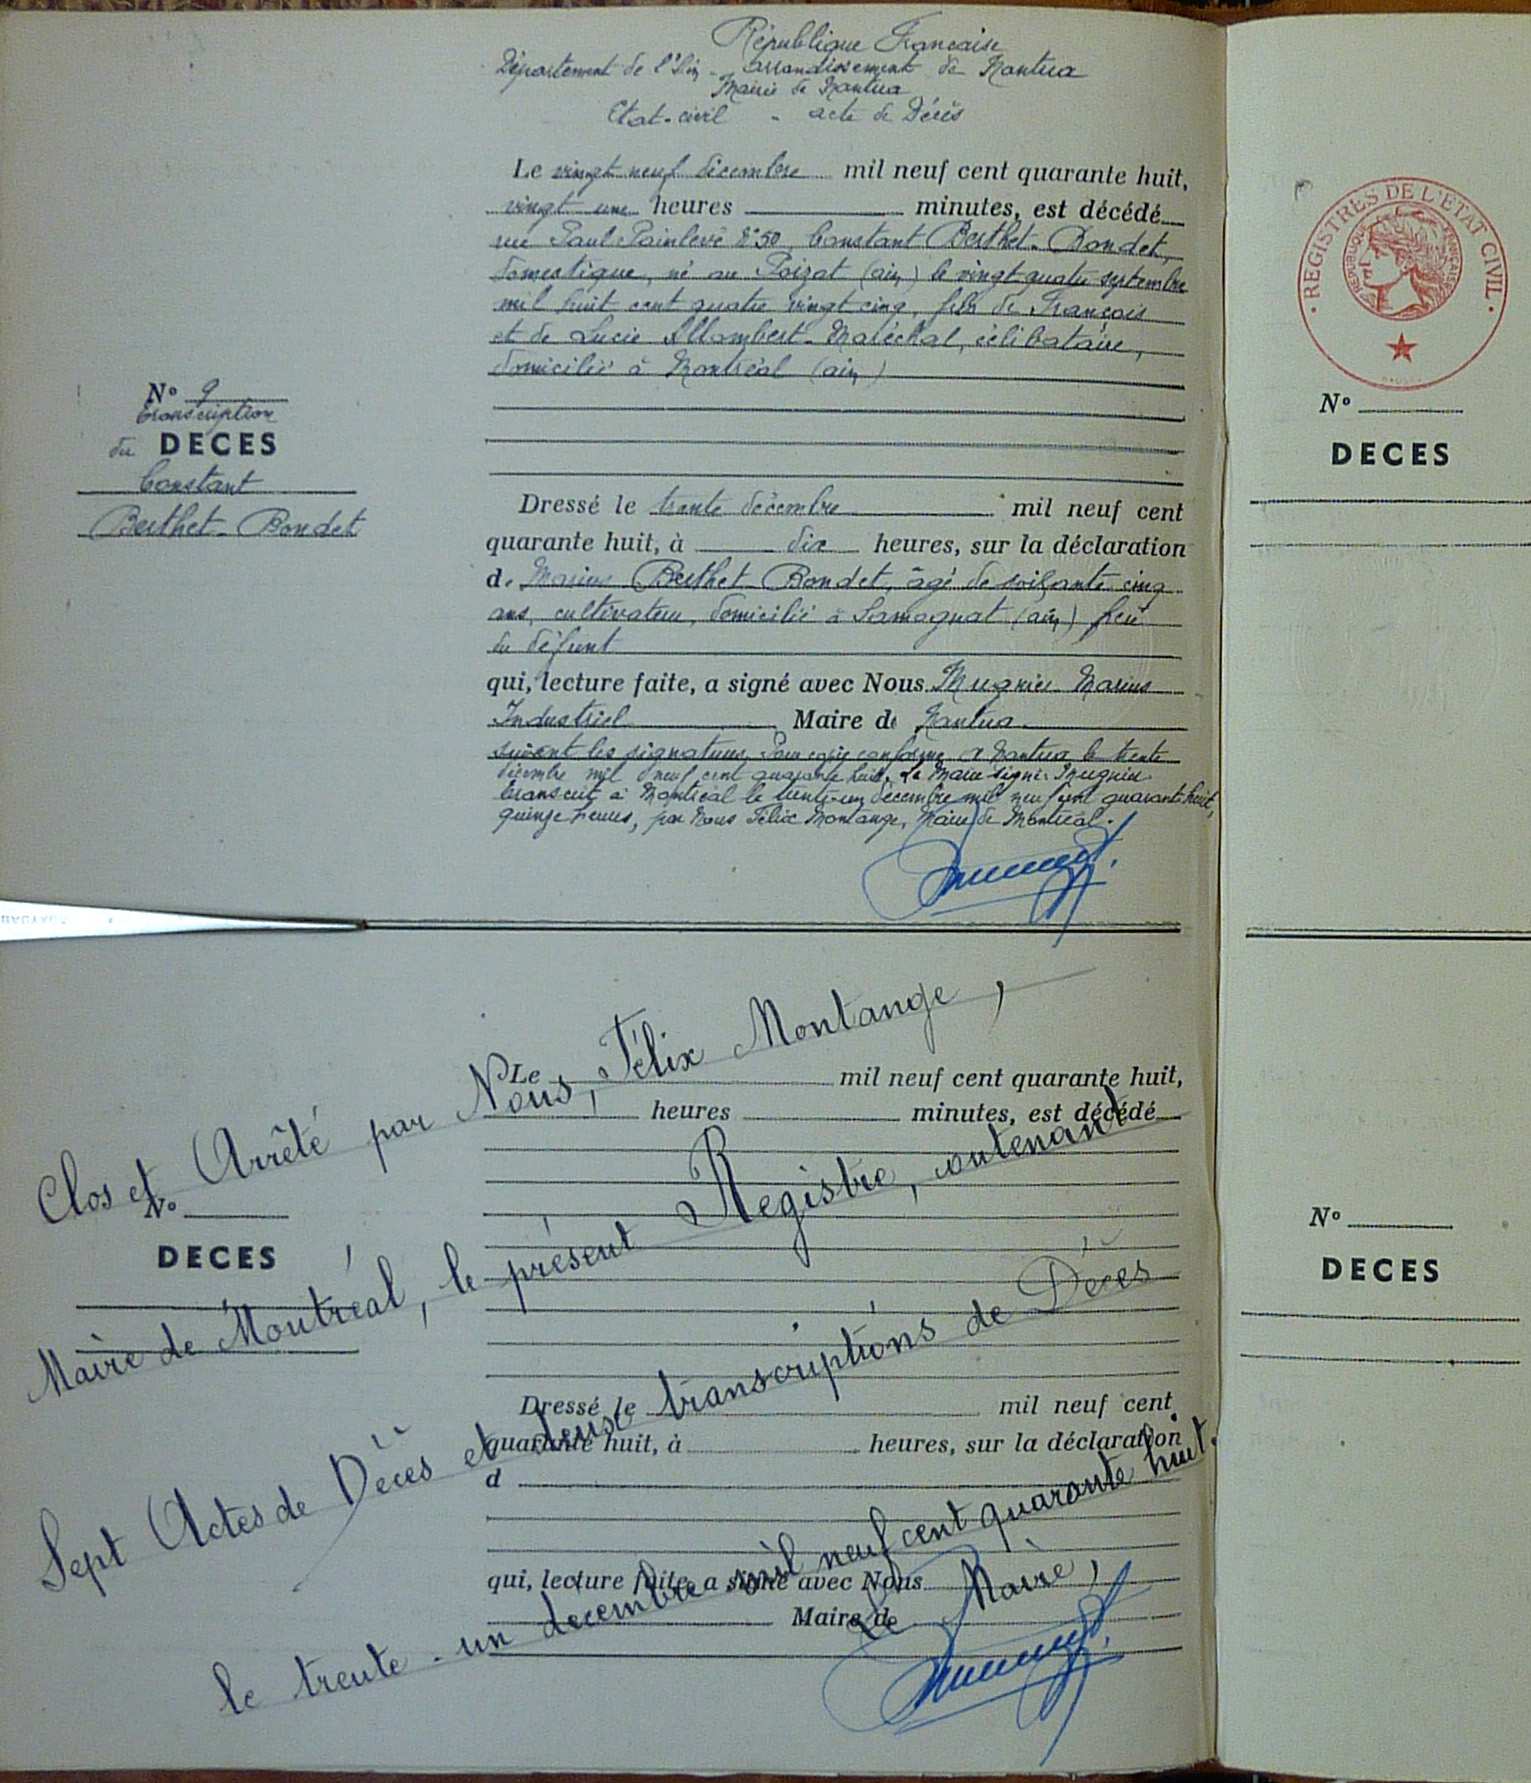 République Française
Département de l'Ain - arrondissement de Nantua
Mairie de Nantua
Etat-civil - acte de Décès
Le vingt neuf décembre mil neuf cent quarante huit,
vingt une heures minutes, est décédé
rue Paul Painlevé N°50, Constant Berthet-Bondet,
domestique, né au Poizat (ain) le vingt quatre septembre
mil huit cent quatre vingt cinq, fils de François
et de Lucie Allombert-Maréchal, célibataire,
domicilié à Montréal (ain)
N° 9
transcription
du DECES
Constant
Berthet-Bondet
Dressé le trente décembre mil neuf cent
quarante huit, à dix heures, sur la déclaration
de Marius Berthet-Bondet, âgé de soixante cinq
ans, cultivateur, domicilié à Samognat (ain) frère
du défunt
qui, lecture faite, a signé avec Nous Mugnier Marius
Industriel Maire de Nantua
suivent les signatures Pour copie conforme a Nantua le trente
décembre mil neuf cent quarante huit. Le Maire signé: Mugnier
transcrit à Montréal le trente-un décembre mil neuf cent quarante huit,
quinze heures, par Nous Félix Montange, Maire de Montréal.
Clos et Arrêté par Nous, Félix Montange,
Maire de Montréal, le présent Registre, contenant
Sept Actes de Décès et deux transcriptions de Décès
le trente-un décembre mil neuf cent quarante huit.
Le Maire,
Le mil neuf cent quarante huit,
heures minutes, est décédé
N°
DECES
Dressé le mil neuf cent
quarante huit, à heures, sur la déclaration
d
qui, lecture faite, a signé avec Nous
Maire de
REGISTRES DE L'ETAT CIVIL
REPUBLIQUE FRANÇAISE
N°
DECES
N°
DECES